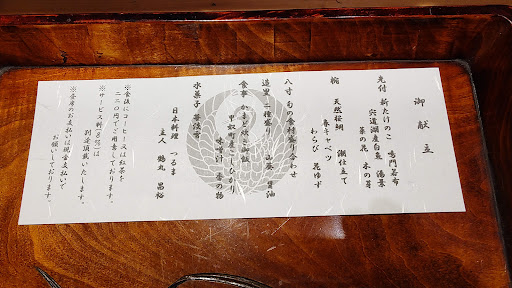 御献立
先付 新たけのこ 鳴門若布 湯葉
宍道湖産白魚 菜の花 木の芽
椀 天然桜鯛 潮仕立て
春キャベツ
わらび 花ゆず
八寸 旬の食材盛り合わせ
造里 二種盛り 山葵 醤油
食事 かまど炊き御飯
甲奴町産こしひかり
味噌汁 香の物
水菓子
日本料理 つるま
主人 鶴丸 昌裕
※食後にコーヒー又は紅茶を
二二〇円でご用意しております。
※サービス料
別途頂戴いたします。
※食席のお支払いは現金支払いで
お願いしております。